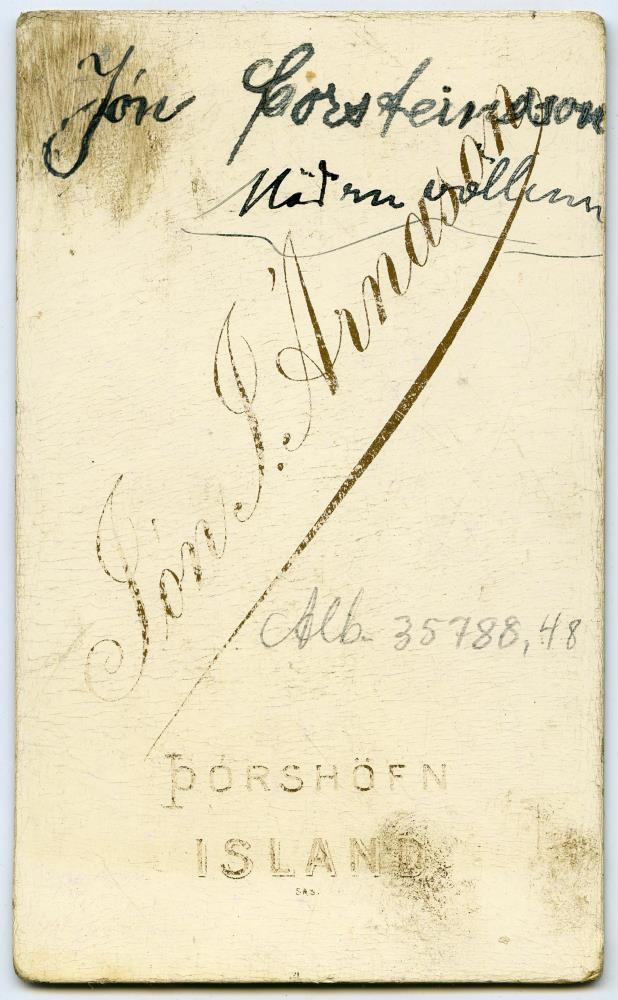 Jón Þorsteinsson
Möðruvöllum
Jón J. Árnason
Alb. 35788,48
ÞÓRSHÖFN
ISLAND